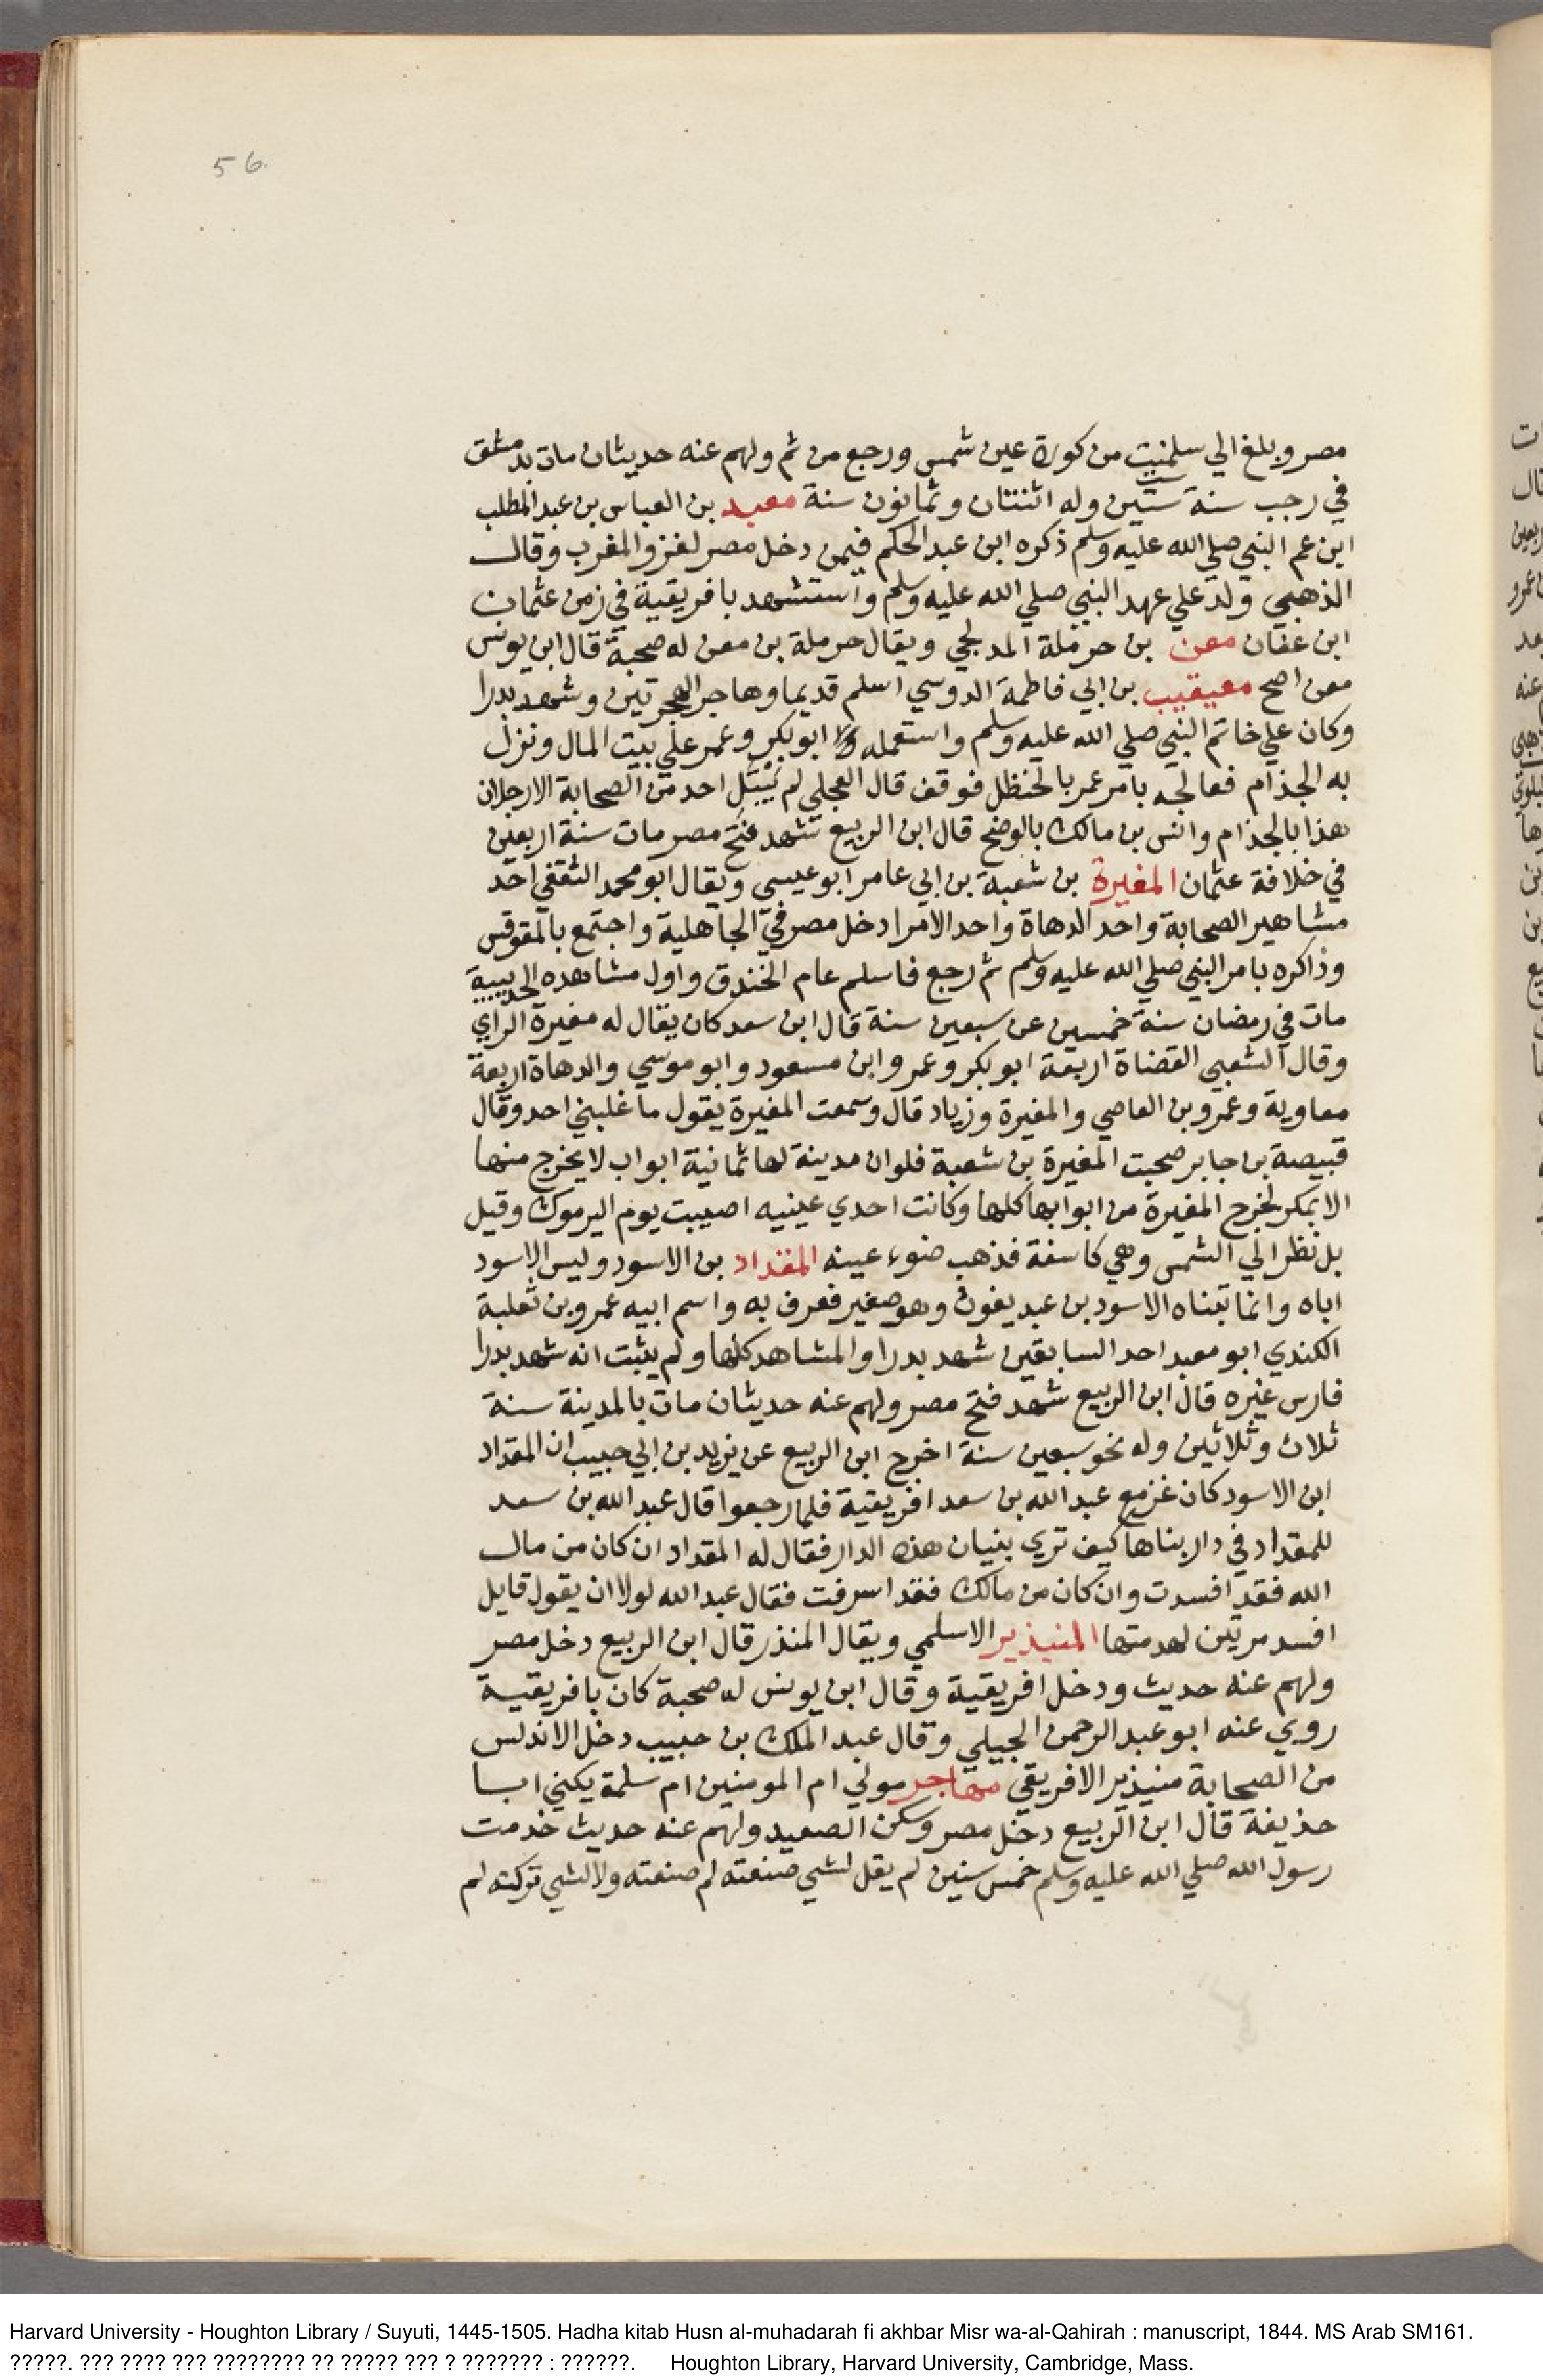 56
مصر وبلغ الي سلمنت من كورة عين شمس ورجع من ثم ولهم عنه حديثان مات بدمشق
في رجب سنة ستين وله اثنتان وثمانون سنة معبد بن العباس بن عبد المطلب
ابن عم النبي صلي الله عليه وسلم ذكره ابن عبد الحكم فيمن دخل مصر لغزو المغرب وقال
الذهبي ولد علي عهد النبي صلي الله عليه وسلم واستشهد بافريقية في زمن عثمان
ابن عفان معن بن حرملة المدلجي ويقال حرملة بن معن له صحبة قال ابن يونس
معن اصح معيقيب بن ابي فاطمة الدوسي اسلم قديما وهاجر الهجرتين وشهد بدرا
وكان علي خاتم النبي صلي الله عليه وسلم واستعمله ابو بكر وعمر علي بيت المال ونزل
به الجذام فعالجه بامر عمر بالحنظل فوقف قال العجلي لم يبتل احد من الصحابة الا رجلان
هذا بالجذام وانس بن مالك بالوضح قال ابن الربيع شهد فتح مصر مات سنة اربعين
في خلافة عثمان المغيرة بن شعبة بن ابي عامر ابو عيسي ويقال ابو محمد الثقفي احد
مشاهير الصحابة واحد الدهاة واحد الامرا دخل مصر في الجاهلية واجتمع بالمقوقس
وذاكره بامر النبي صلي الله عليه وسلم ثم رجع فاسلم عام الخندق واول مشاهده الحديبية
مات في رمضان سنة خمسين عن سبعين سنة قال ابن سعد كان يقال له مغيرة الراي
وقال الشعبي القضاة اربعة ابو بكر وعمر وابن مسعود وابو موسي والدهاة اربعة
معاوية وعمرو بن العاصي والمغيرة وزياد قال وسمعت المغيرة يقول ما غلبني احد وقال
قبيصة بن جابر صحبت المغيرة بن شعبة فلو ان مدينة لها ثمانية ابواب لا يخرج منها
الا بمكر لخرج المغيرة من ابوابها كلها وكانت احدي عينيه اصيبت يوم اليرموك وقيل
بل نظر الي الشمس وهي كاسفة فذهب ضوء عينه المقداد بن الاسود وليس الاسود
اباه وانما تبناه الاسود بن عبد يغوث وهو صغير فعرف به واسم ابيه عمرو بن ثعلبة
الكندي ابو معبد احد السابقين شهد بدرا والمشاهد كلها ولم يثبت انه شهد بدرا
فارس غيره قال ابن الربيع شهد فتح مصر ولهم عنه حديثان مات بالمدينة سنة
ثلاث وثلاثين وله نحو سبعين سنة اخرج ابن الربيع عن يزيد بن ابي حبيب ان المقداد
ابن الاسود كان غز مع عبد الله بن سعد افريقية فلما رجعوا قال عبد الله بن سعد
للمقداد في دار بناها كيف تري بنيان هذه الدار فقال له المقداد ان كان من مال
الله فقد افسدت وان كان من مالك فقد اسرفت فقال عبد الله لولا ان يقول قايل
افسد مرتين لهدمتها المنيذير الاسلمي ويقال المنذر قال ابن الربيع دخل مصر
ولهم عنه حديث ودخل افريقية وقال ابن يونس له صحبة كان بافريقية
روي عنه ابو عبد الرحمن الجبيلي وقال عبد الملك بن حبيب دخل الاندلس
من الصحابة منيذير الافريقي مهاجر مولي ام المومنين ام سلمة يكني ابا
حذيفة قال ابن الربيع دخل مصر وسكن الصعيد ولهم عنه حديث خدمت
رسول الله صلي الله عليه وسلم خمس سنين لم يقل لشي صنعته لم صنعته ولا لشي تركته لم
Harvard University - Houghton Library / Suyuti, 1445-1505. Hadha kitab Husn al-muhadarah fi akhbar Misr wa-al-Qahirah : manuscript, 1844. MS Arab SM161.
?????. ??? ???? ??? ???????? ?? ????? ??? ? ??????? : ??????. Houghton Library, Harvard University, Cambridge, Mass.